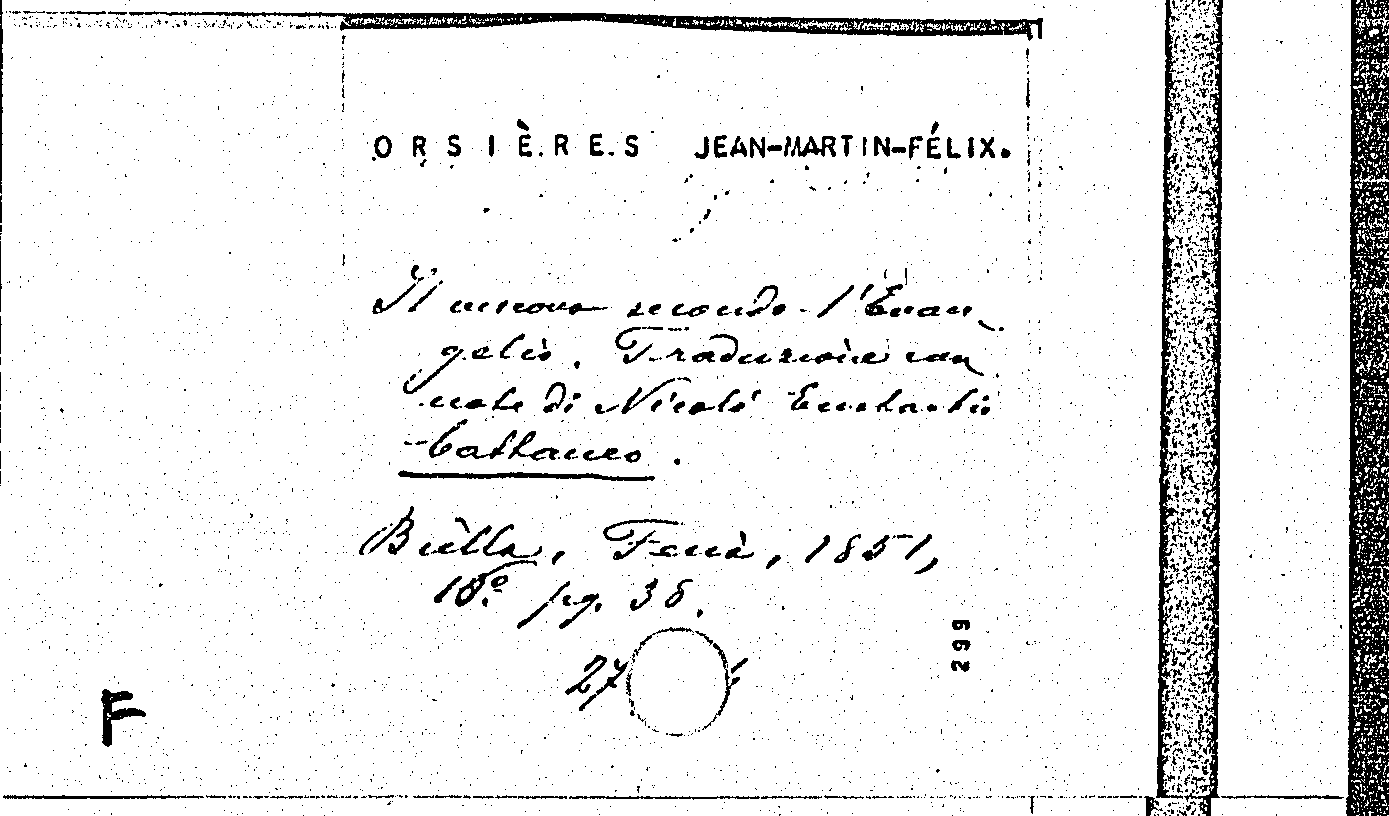 ORSIÈRES JEAN-MARTIN-FÉLIX.
Il vescovo secondo l'Evan-
gelio. Traduzione con
note di Nicolò Eustachio
Cattaneo.
Biella, Ferià, 1851,
18º pg. 38.
27
299
F